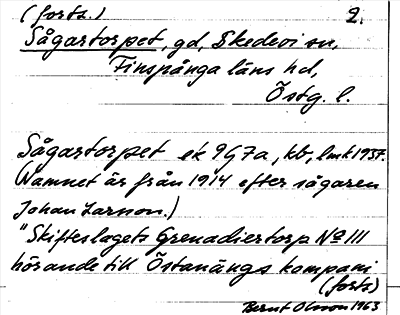 (forts.) 2.
Sågartorpet, gd, Skedevi sn,
Finspånga läns hd,
Östg. l.
Sågartorpet ek 9G7a, kb, lmk 1957.
(Namnet är från 1914 efter sågaren
Johan Larsson.)
"Skifteslagets Grenadiertorp No III
hörande till Östanängs kompani
(forts)
Bernt Olsson 1963